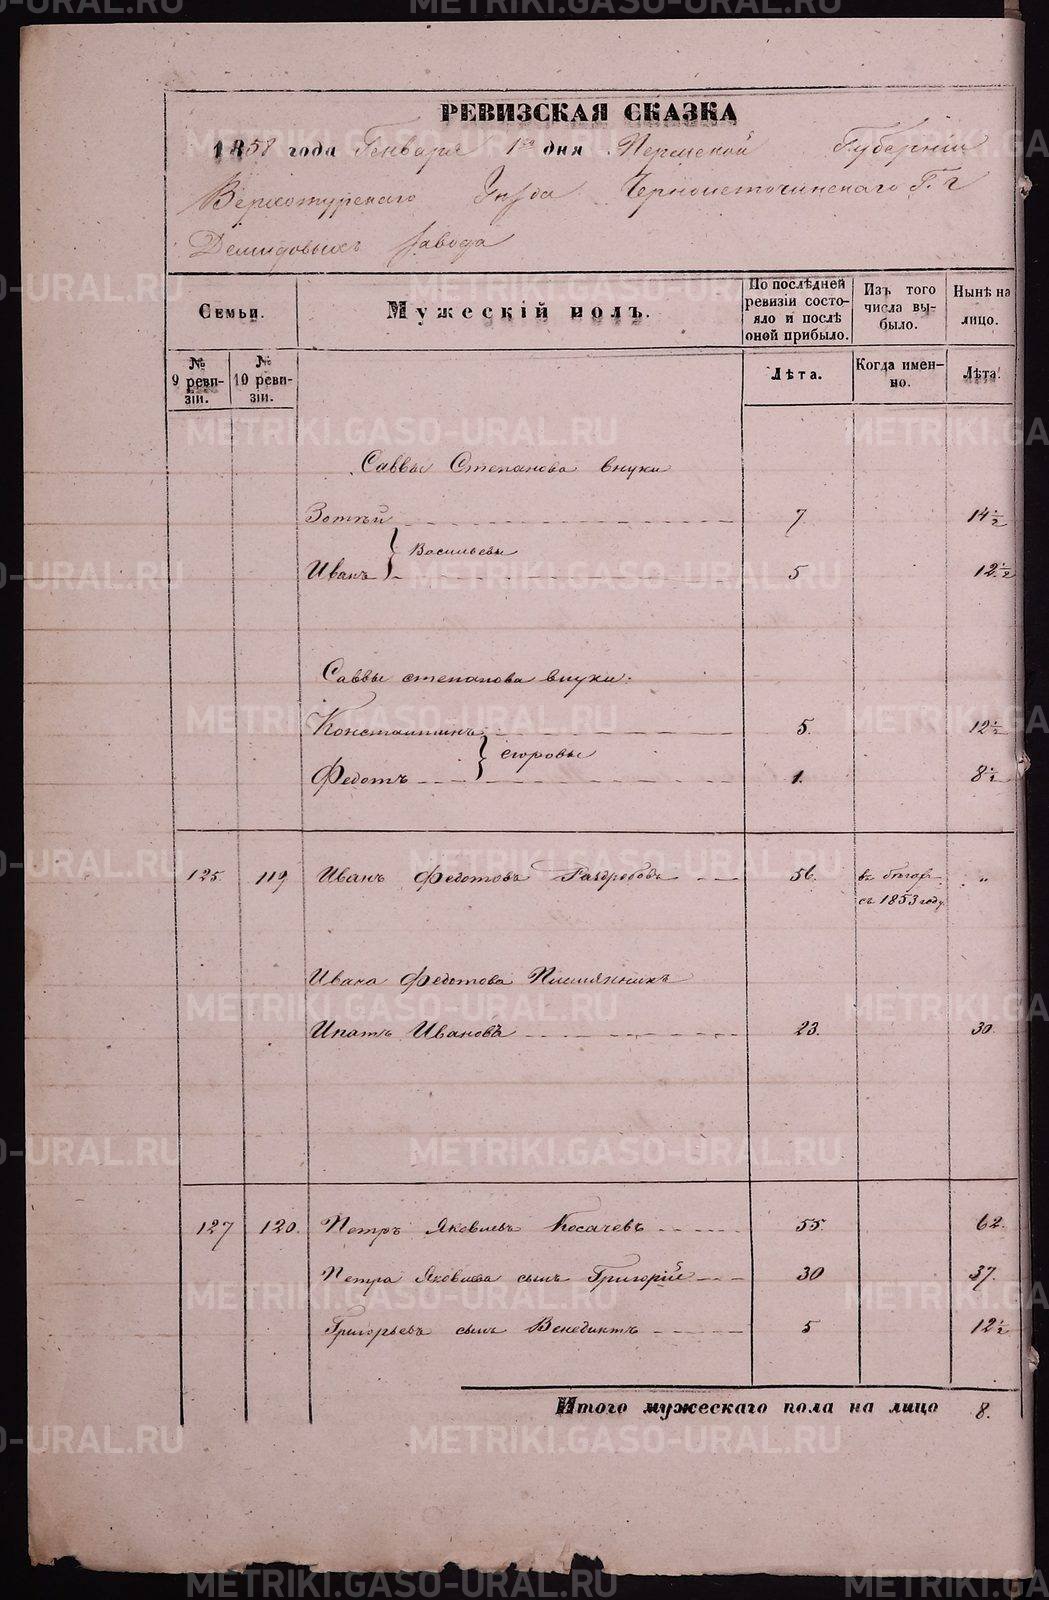 РЕВИЗСКАЯ СКАЗКА
1858 года Генваря 1го дня Пермской Губернии
Верхотурскаго Уезда Черноисточинскаго Г. г
Демидовыхъ завода
Семьи.
Мужескій полъ.
По послѣдней ревизіи состояло и послѣ оной прибыло.
Изъ того числа выбыло.
Нынѣ на лицо.
№ 9 ревизіи.
№ 10 ревизіи.
Лѣта.
Когда именно.
Лѣта.
Саввы Степанова внуки
Зотѣй 7 14 1/2
Васильевы
Иванъ 5 12 1/2
Саввы степанова внуки.
Константинъ 5. 12 1/2
Федотъ 1. 8 1/2
125. 119 Иванъ Федотовъ 56. въ „
съ 1853 году
Ивана Федотова Племянникъ
Ипатъ Ивановъ 23. 30
127 120. Петръ Яковлевъ Косачевъ 55. 62.
Петра Яковлева сынъ Григорій 30 37.
Григорьевъ сынъ Венедиктъ 5 12 1/2
Итого мужескаго пола на лицо 8.
METRIKI.GASO-URAL.RU